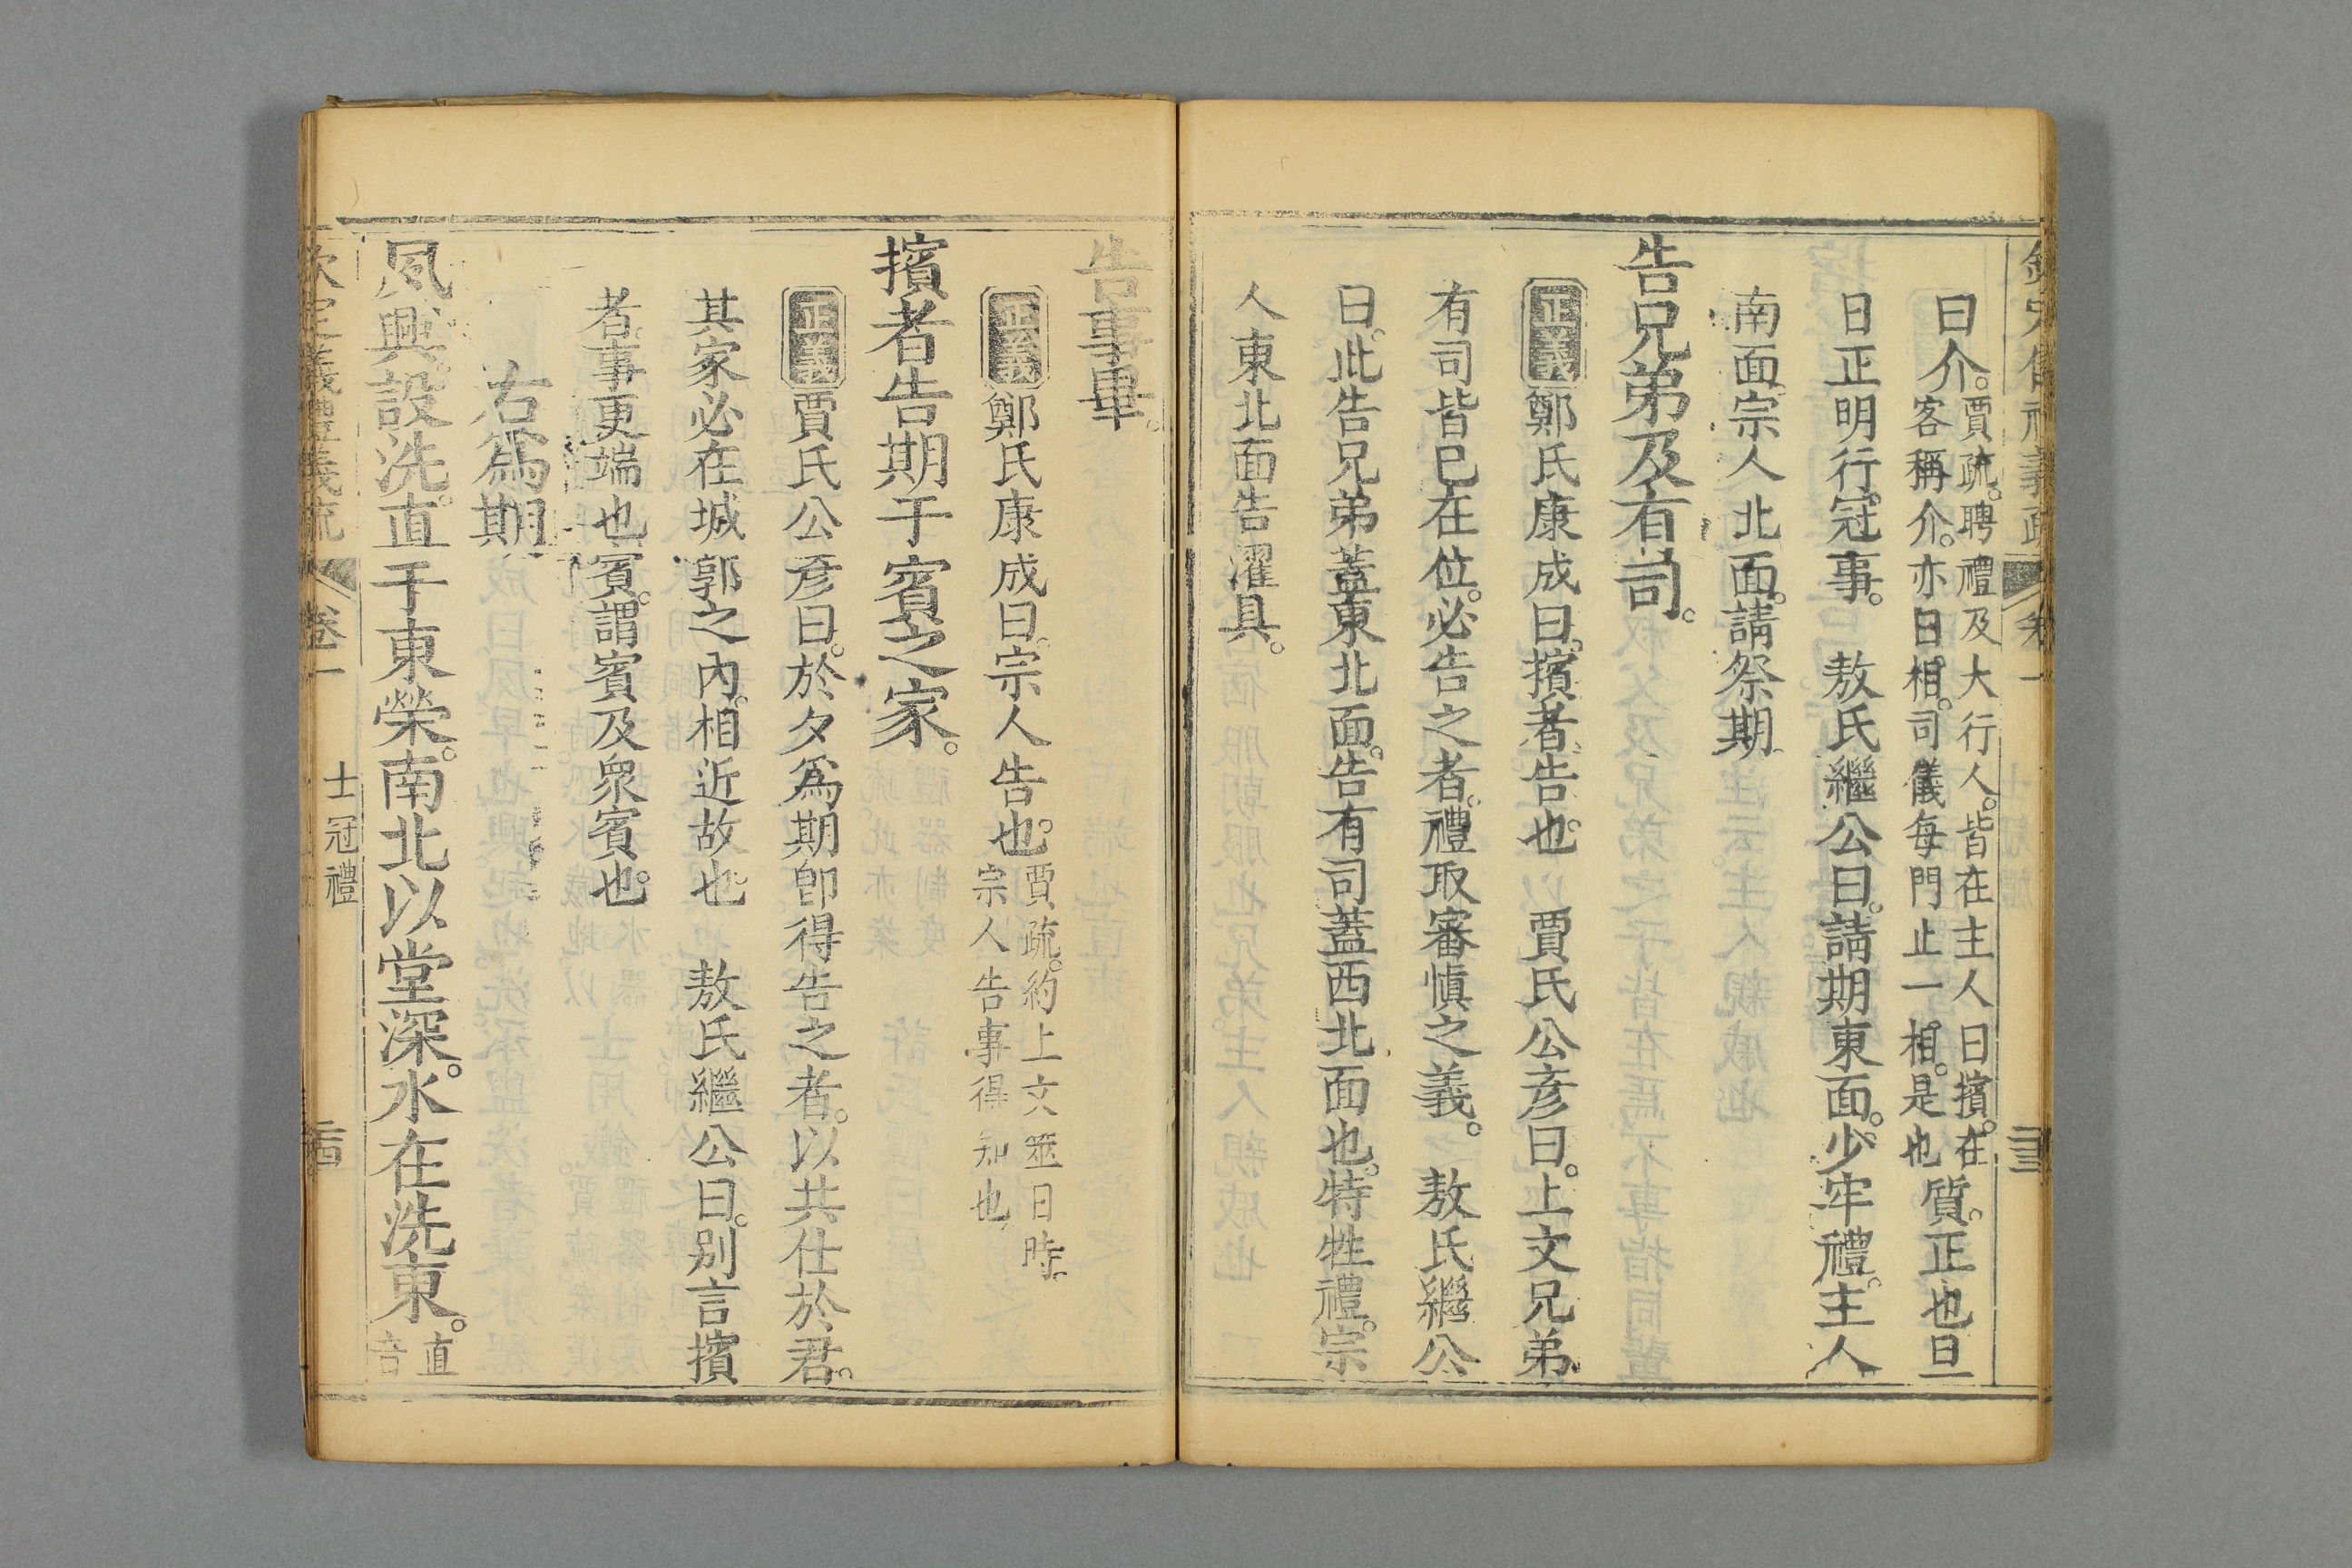 曰介。賈疏。聘禮及大行人。皆在主人曰擯。在
客稱介。亦曰相。司儀每門止一相。是也
質。正也旦
日正明行冠事。 敖氏繼公曰。請期東面。少牢禮。主人
南面宗人北面。請祭期
告兄弟及有司。
正義 鄭氏康成曰。擯者告也。 賈氏公彥曰。上文兄弟
有司皆已在位。必告之者。禮取審慎之義。 敖氏繼公
曰。此告兄弟蓋東北面。告有司蓋西北面也。特牲禮。宗
人東北面告濯具。
告事畢。
正義 鄭氏康成曰。宗人告也。賈疏。約上文筮日時。
宗人告事得知也
擯者告期于賓之家。
正義 賈氏公彥曰。於夕爲期卽得告之者。以共仕於君。
其家必在城郭之內。相近故也。 敖氏繼公曰。别言擯
者。事更端也。賓。謂賓及眾賓也。
右爲期
夙興。設洗。直于東榮。南北以堂深。水在洗東。直
音
欽定儀禮義疏 卷一 士冠禮 二四